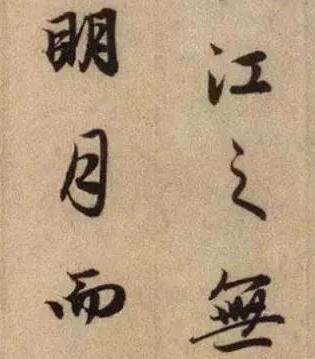 江之無
明月而